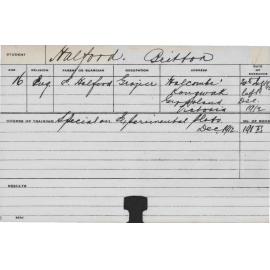 STUDENT
Halford. Britton
AGE RELIGION PARENT OR GUARDIAN OCCUPATION ADDRESS DATE OF ENTRANCE
16 Eng. Halford Grazier "Walcombe"
Kongwak
Gippsland
Victoria
left
Dec
1912
COURSE OF TRAINING Special on Experimental plots
Dec. 1912
RESULTS